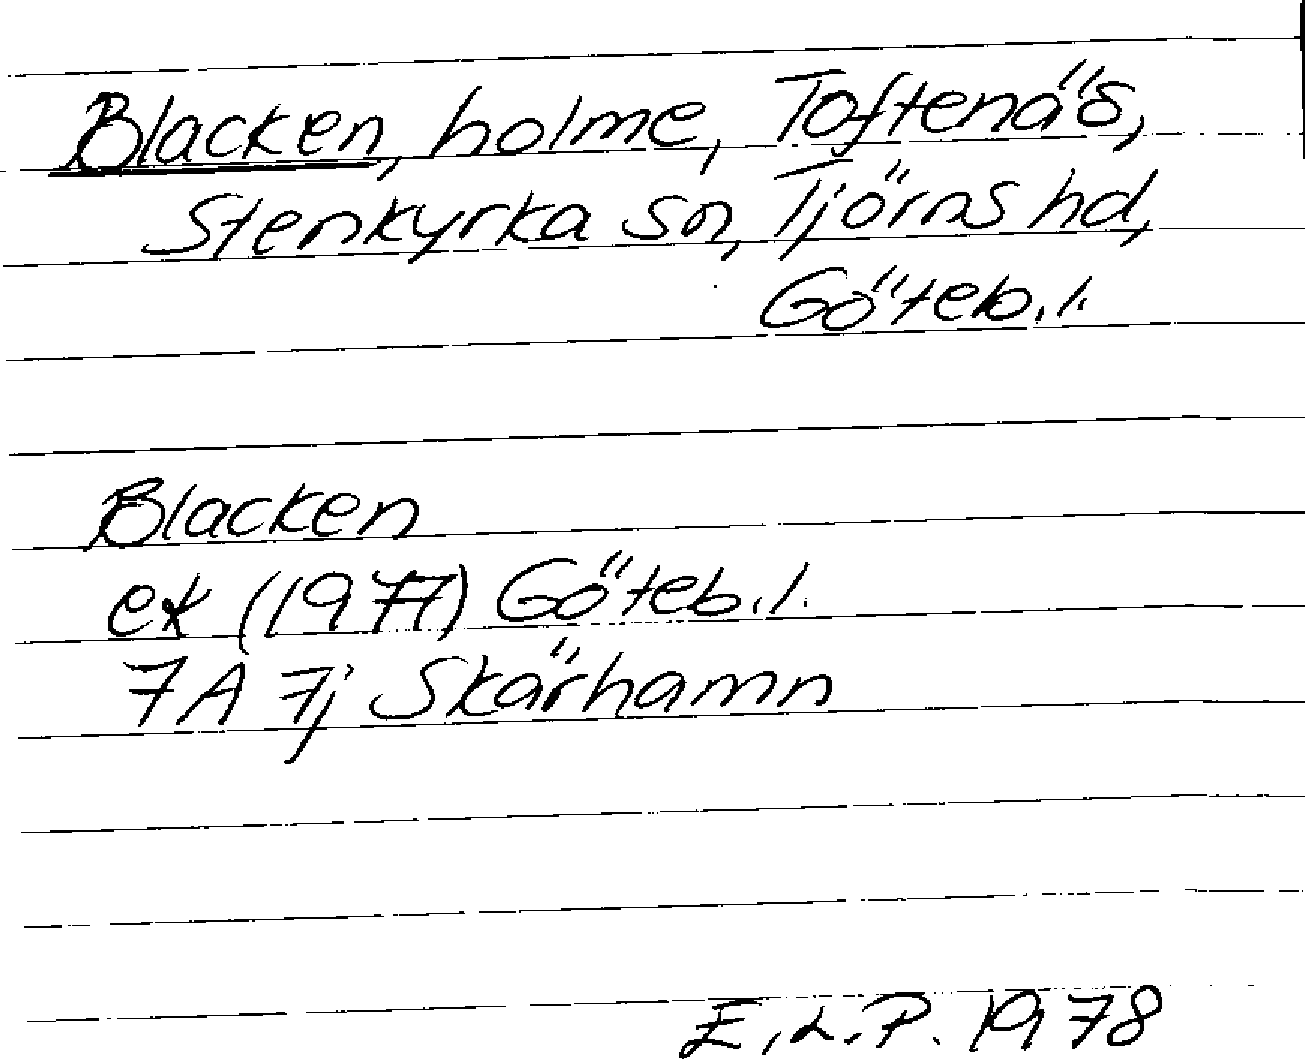 Blacken, holme, Toftenäs,
Stenkyrka sn, Tjörns hd,
Göteb. l.
Blacken
ek (1977) Göteb. l.
7A 7j Skärhamn
E.L.P. 1978